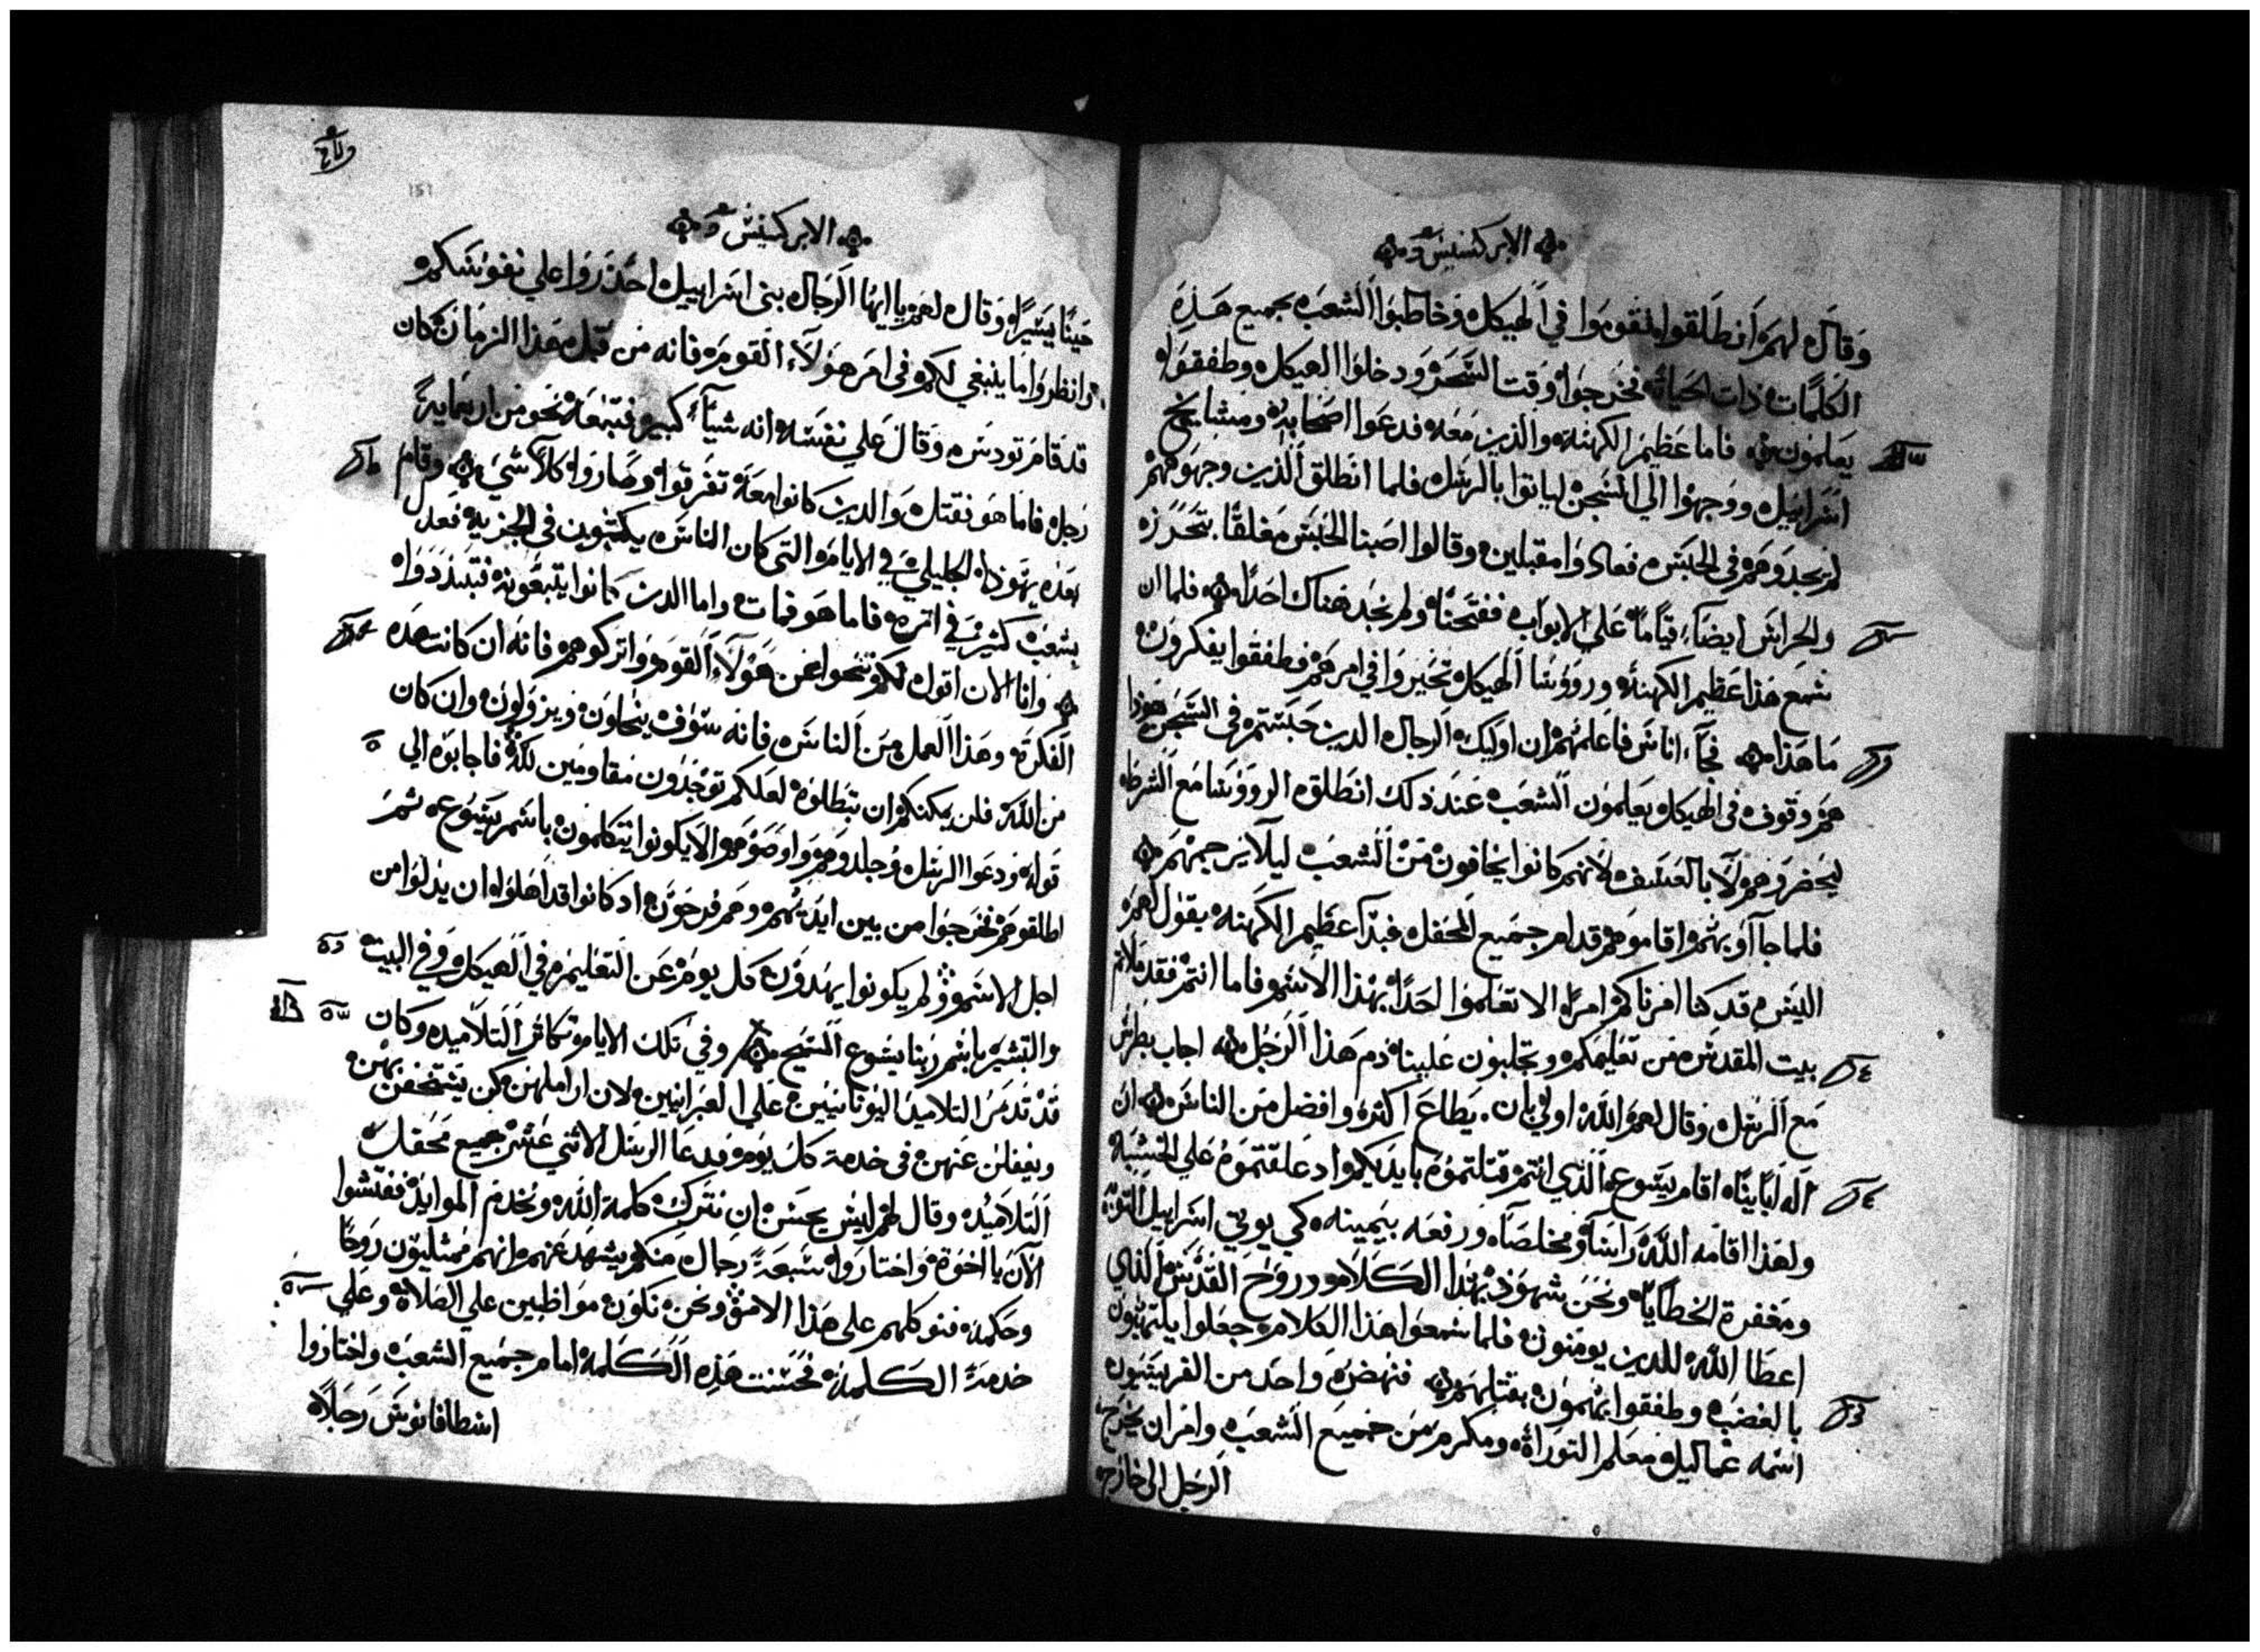 الابركسيس
وقال لهم انطلقوا فقوموا في الهيكل وخاطبوا الشعب بجميع هذه
الكلمات ذات الحياة فخرجوا وقت السحر ودخلوا الهيكل وطفقوا
يعلمون فاما عظيم الكهنة والذين معه فدعوا اصحابه ومشايخ
اسراييل ووجهوا الي السجن لياتوا بالرسل فلما انطلق الذين وجهوهم
لم يجدوهم في الحبس فعادوا مقبلين وقالوا اصبنا الحبس مغلقا بتحرز
والحراس ايضا قياما علي الابواب ففتحنا ولم نجد هناك احدا فلما ان
سمع هذا عظيم الكهنة وروؤسا الهيكل تحيروا في امرهم فطفقوا يفكرون
ما هذا فجاء اناس فاعلموهم ان اوليك الرجال الدين حبستم في السجن هوذا
هم وقوف في الهيكل يعلمون الشعب عند ذلك انطلق الروؤسا مع الشرط
ليحضروهم لا بالعسف لانهم كانوا يخافون من الشعب ليلا يرجمهم
فلما جاآوا بهم واقاموهم قدام جميع المحفل فبدا عظيم الكهنة يقول لهم
اليس قد كنا امرناكم امرا الا تعلموا احدا بهذا الاسم فاما انتم فقد ملاتم
بيت المقدس من تعليمكم وتجلبون علينا دم هذا الرجل اجاب بطرس
مع الرسل وقال لهم الله اولي بان يطاع اكثر وافضل من الناس ان
اله ابايناا اقام يسوع الذي انتم قتلتموه بايديكم اد علقتموه علي الخشبة
ولهذا اقامه الله راسا ومخلصا ورفعه بيمينه كي يوتي اسراييل التوبة
ومغفرة الخطايا ونحن شهود بهذا الكلام وروح القدس الذي
اعطا الله للدين يومنون فلما سمعوا هذا الكلام جعلوا يلتهبون
بالغضب وطفقوا يهمون بقتلهم فنهض واحد من الفريسيون
اسمه غماليل معلم التوراة ومكرم من جميع الشعب وامر ان يخرج
الرجل الي خارج
151
الابركسيس
حينا يسيرا وقال لهم يا ايها الرجال بني اسراييل احذروا علي نفوسكم
وانظروا ما ينبغي لكم في امر هولاء القوم فانه من قبل هذا الزمان كان
قد قام تودس وقال علي نفسه انه شيا كبير فتبعه نحو من اربعماية
رجل فاما هو فقتل والدين كانوا معه تفرقوا وصاروا كلا شي وقام
بعده يهوذا الجليلي في الايام التي كان الناس يكتبون في الجزية فعدل
بشعب كثير في اثره فاما هو فمات واما الدين كانوا يتبعونه فتبددوا
وانا الان اقول لكم تنحوا عن هولاء القوم واتركوهم فانه ان كانت هده
الفكرة وهذا العمل من الناس فانه سوف ينحلون ويزولون وان كان
من الله فلن يمكنكم ان تبطلوه لعلكم توجدون مقاومين لله فاجابوه الي
قوله ودعوا الرسل وجلدوهم واوصوهم الا يكونوا يتكلمون باسم يسوع ثم
اطلقوهم فخرجوا من بين ايديهم وهم فرحون اد كانوا قد اهلوا ان يذلوا من
اجل الاسم ولم يكونوا يهدون كل يوم عن التعليم في الهيكل وفي البيت
والتبشير باسم ربنا يسوع المسيح وفي تلك الايام تكاثر التلاميد وكان
قد تدمر التلاميد اليونانيين علي العبرانيين لان اراملهن كن يستخفن بهن
ويغفلن عنهن في خدمة كل يوم فدعا الرسل الاثني عشر جميع محفل
التلاميد وقال لهم ليس يحسن ان نترك كلمة الله ونخدم الموايد ففتشوا
الان يا اخوة واختاروا سبعة رجال منكم يشهد عنهم انهم ممتليون روحا
وحكمة فنوكلهم علي هذا الامر ونحن نكون مواظبين علي الصلاة وعلي
خدمة الكلمة فحسنت هذه الكلمة امام جميع الشعب واختاروا
اسطافانوس رجلا